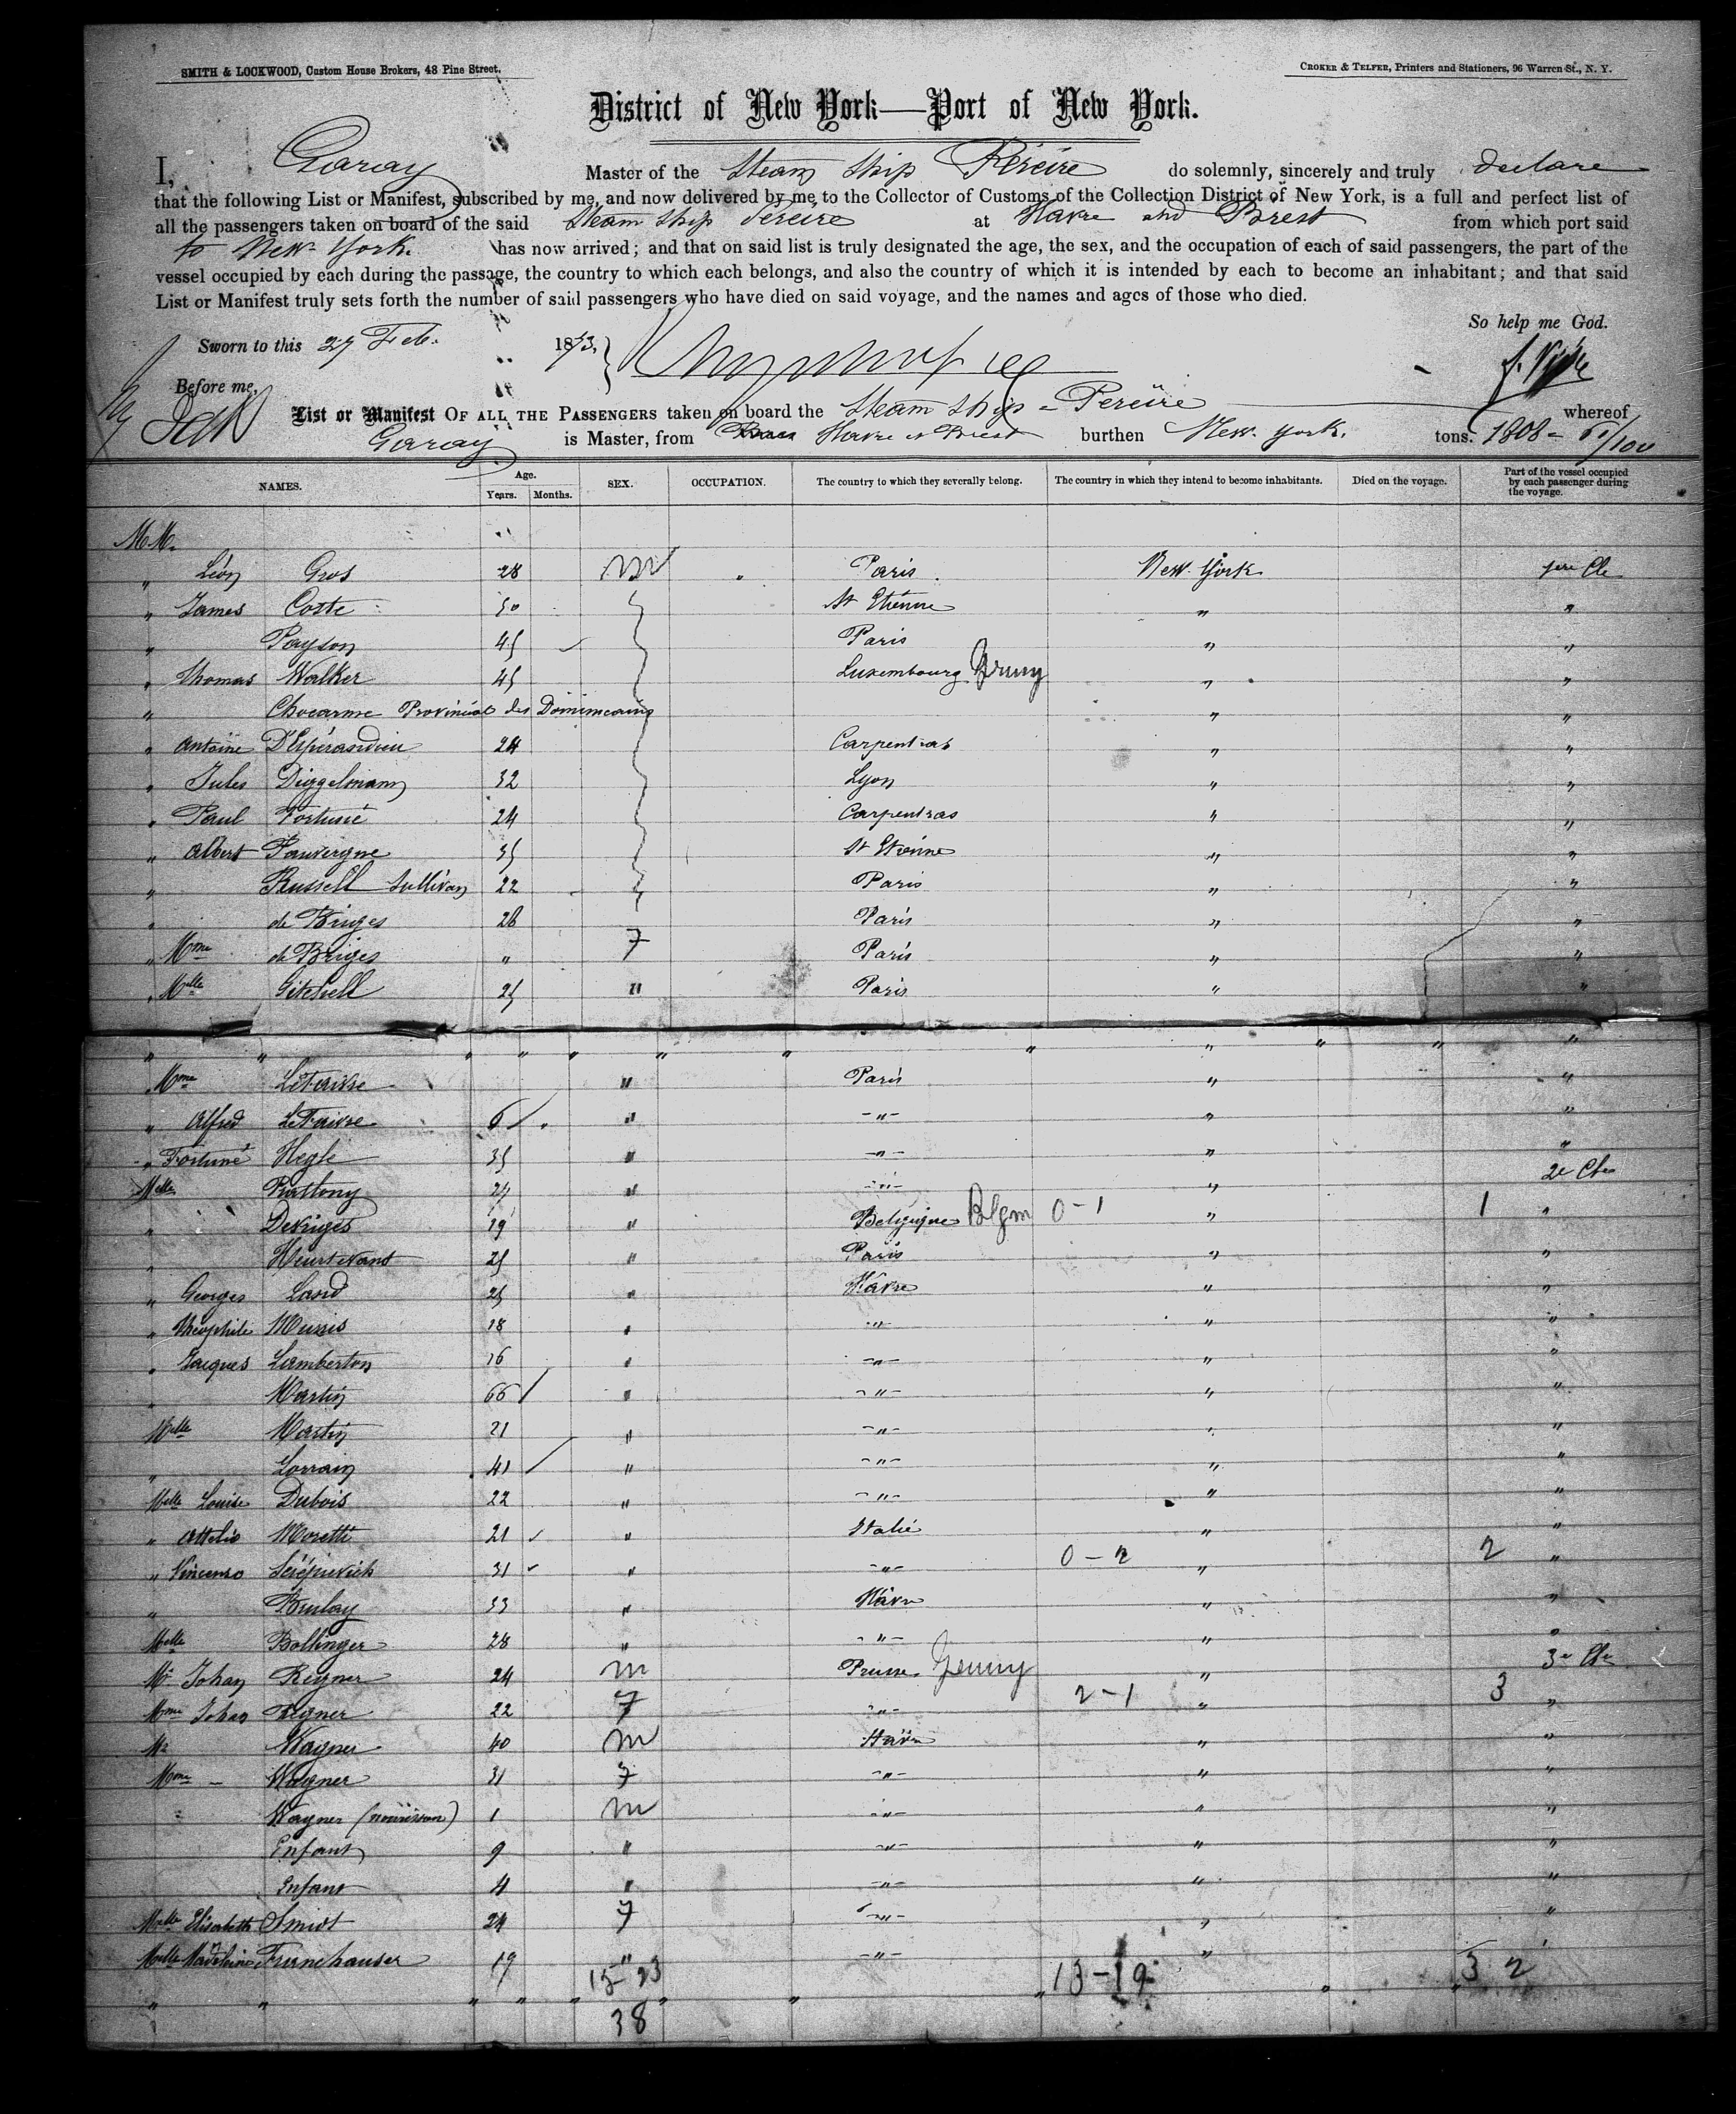 SMITH & LOCKWOOD, Custom House Brokers, 48 Pine Street.
CROKER & TELFER, Printers and Stationers, 96 Warren St., N. Y.
District of New York—Port of New York.
I, Garay Master of the Steam Ship Péreire do solemnly, sincerely and truly declare
that the following List or Manifest, subscribed by me, and now delivered by me to the Collector of Customs of the Collection District of New York, is a full and perfect list of
all the passengers taken on board of the said Steam Ship Péreire at Havre and Brest from which port said
to New York. has now arrived; and that on said list is truly designated the age, the sex, and the occupation of each of said passengers, the part of the
vessel occupied by each during the passage, the country to which each belongs, and also the country of which it is intended by each to become an inhabitant; and that said
List or Manifest truly sets forth the number of said passengers who have died on said voyage, and the names and ages of those who died.
So help me God.
Sworn to this 27 Feb. 1873.
Before me,
List or Manifest OF ALL THE PASSENGERS taken on board the Steam Ship - Pereire whereof
Garay is Master, from Havre et Brest burthen New York. tons. 1808 - 61/100
NAMES. Age. Years. Months. SEX. OCCUPATION. The country to which they severally belong. The country in which they intend to become inhabitants. Died on the voyage. Part of the vessel occupied by each passenger during the voyage.
MM.
" Léon Gros 28 m " Paris New York 1ere Cle
" James Coste 50 St Etienne " "
" Payson 45 Paris " "
" Thomas Walker 45 Luxembourg Grmny " "
" Chocarme Provincial des Dominicains " "
" Antoine D'Espérandieu 24 Carpentras " "
" Jules Diggelmann 32 Lyon " "
" Paul Fortuné 24 Carpentras " "
" Albert Fauvergne 35 St Etienne " "
" Russell Sullivan 22 Paris " "
" de Briges 28 Paris " "
" Mme de Briges " F Paris " "
" Melle Gitchell 25 " Paris " "
" " " " " " " " " " " "
Mme LeFaivre " Paris " "
" Alfred LeFaivre 6 " " -"- " "
" Fortuné Hegle 35 " -"- " "
Melle Prattony 27 " -"- " 2e Cle
" Devinges 19 " Belgique Blgm 0-1 " 1 "
" Heurtevant 25 " Paris " "
" Georges Lavid 25 " Hâvre " "
" Théophile Munis 18 " -"- " "
" Jacques Lamberton 16 " -"- " "
" Martin 66 " -"- " "
Melle Martin 21 " -"- " "
" Lorrain 41 " -"- " "
Melle Louise Dubois 22 " -"- " "
" Attelio Moretti 21 " Italie " "
" Vincenzo 31 " -"- 0-2 " 2 "
" Brulay 33 " Hâvre " "
Melle Bollinger 28 " -"- " "
Mr Johan Regner 24 m Prusse Grmny " 3e Cle
Mme Johan Regner 22 F -"- 2-1 " 3 "
Mr Wagner 40 m Hâvre " "
Mme - Wagner 31 F -"- " "
Wagner (nourisson) 1 m -"- " "
Enfant 9 " -"- " "
Enfant 4 " -"- " "
Melle Elisabeth Smidt 24 F -"- " "
Melle Madeleine Furnehauser 19 " -"- " "
15-23 13-19 3 2
" " " " " " " " " "
38